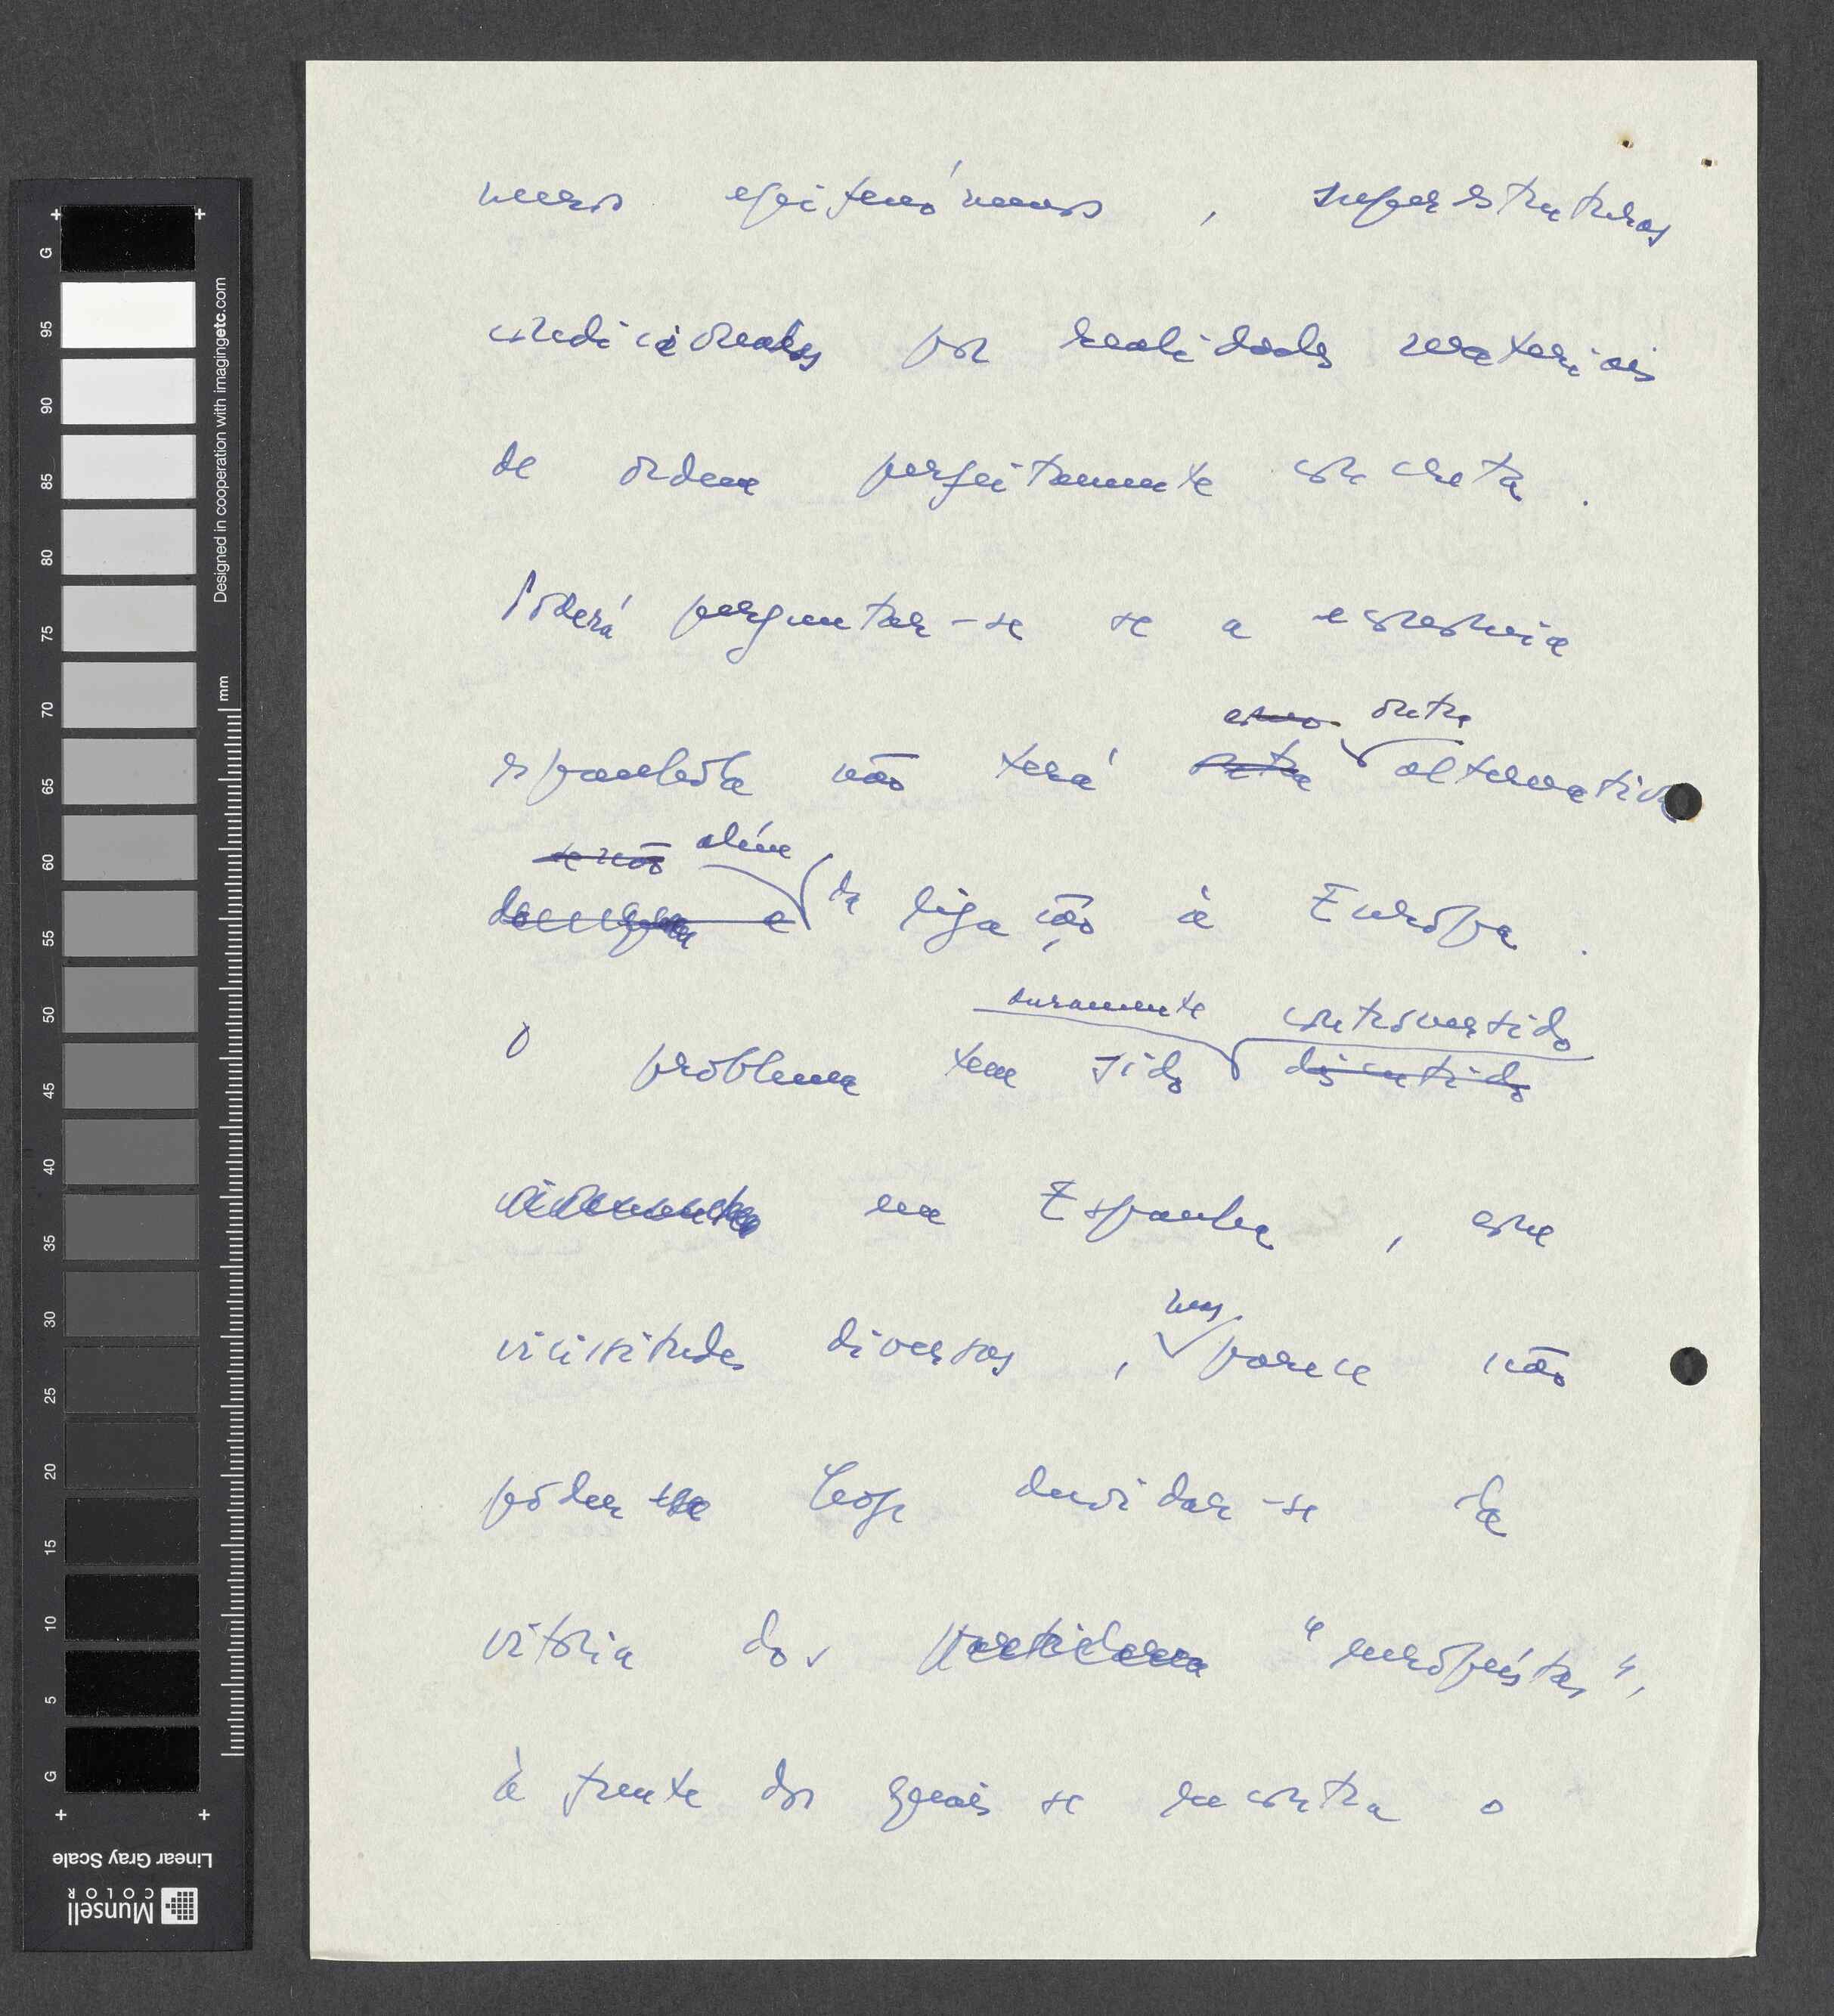 meros epifenómenos, superestruturas
condicionadas por realidades materiais
de ordem perfeitamente concreta.
Poderá perguntar-se se a economia
como outra
espanhola não terá outra alternativa
se não além
da ligação à Europa.
duramente controvertido
O problema tem sido discutido
na Espanha, com
mas
vicissitudes diversas, parece não
poder hoje duvidar-se da
vitória dos "europeístas",
à frente dos quais se encontra o
G
95
90
85
80
75
70
65
60
55
50
45
40
35
30
25
20
15
10
5
G
mm
Designed in cooperation with imagingetc.com
Linear Gray Scale
Munsell
COLOR